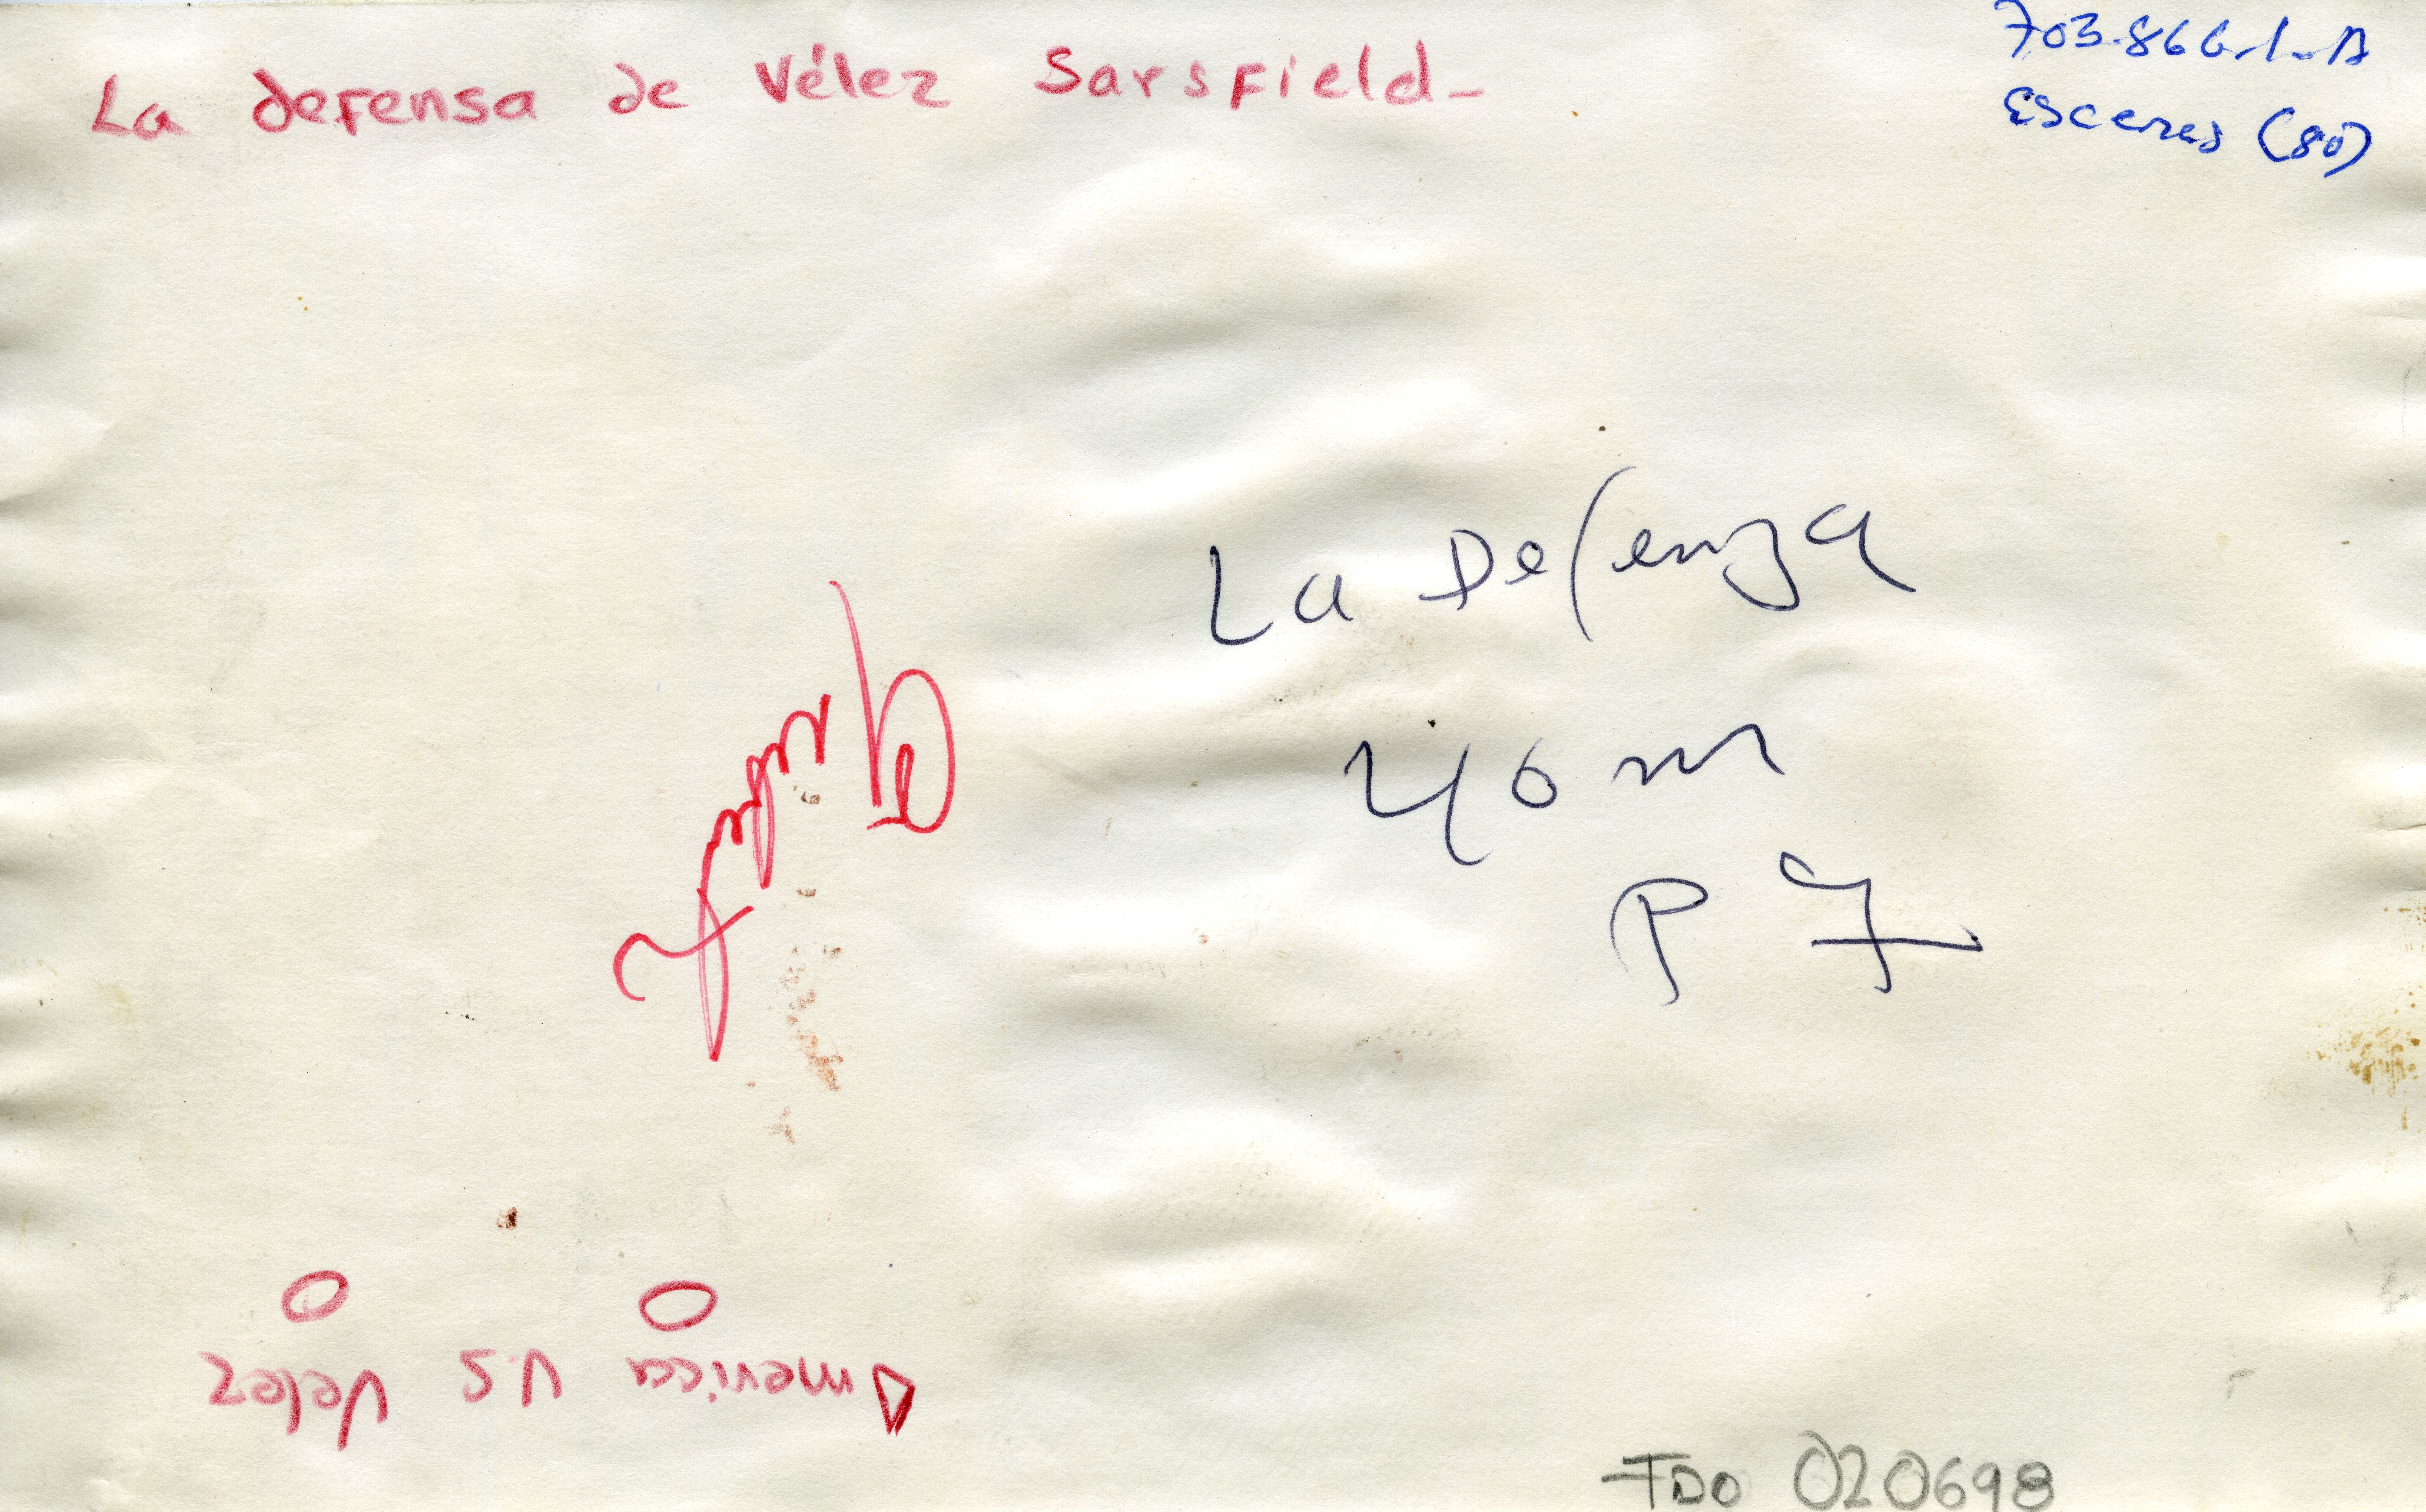 La defensa de Vélez Sarsfield-
703-866-1-A
Escenas (80)
La Defenza
40 m
P 7
America VS Velez
0 0
TDO 020698